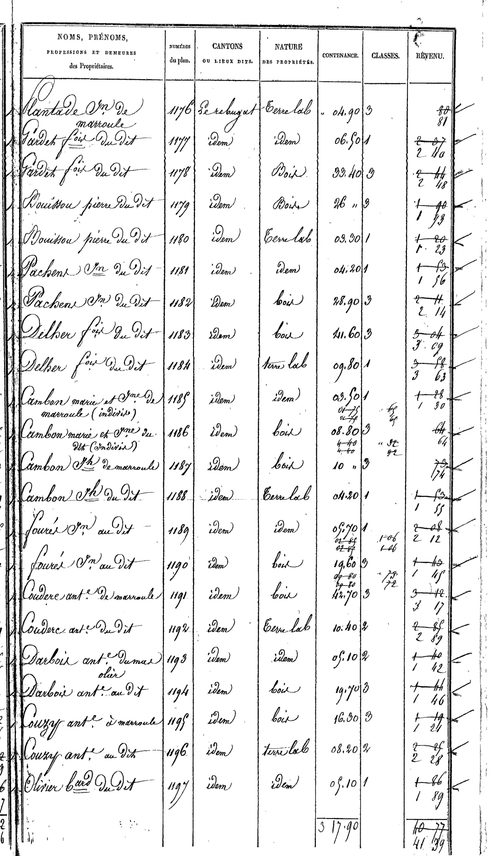 NOMS, PRÉNOMS, PROFESSIONS ET DEMEURES des Propriétaires. NUMÉROS du plan. CANTONS OU LIEUX DITS. NATURE DES PROPRIÉTÉS. CONTINENCE. CLASSES. REVENU.
Plantade Jn de marroule 1176 Le rebugat Terre lab " 04.90 3 80 81
Gardet fois du dit 1177 idem idem 06.50 1 2 37 2 40
Gardet fois du dit 1178 idem Bois 33.40 3 2 44 2 48
Bouissou pierre du dit 1179 idem Bois 26 " 3 1 90 1 93
Bouissou pierre du dit 1180 idem Terre lab 03.30 1 1 20 1 23
Pachens Jn du dit 1181 idem idem 04.20 1 1 53 1 56
Pachens Jn du dit 1182 idem bois 28.90 3 2 11 2 14
Delher fois du dit 1183 idem bois 41.60 3 3 04 3 09
Delher fois du dit 1184 idem terre lab 09.80 1 3 58 3 63
Cambon marie et Jne de marroule (indivis) 1185 idem idem 03.50 1 1 28 1 30
Cambon marie et Jne du dit (indivis) 1186 idem bois 08.80 3 64 64
Cambon Jh de marroule 1187 idem bois 10 " 3 73 74
Cambon Jh du dit 1188 idem Terre lab 04.20 1 1 53 1 55
fourés Jn au dit 1189 idem idem 05.70 1 2 08 2 12
fourés Jn au dit 1190 idem bois 19.60 3 1 45
Couderc ant.e de marroule 1191 idem bois 42.70 3 3 12 3 17
Couderc ant.e du dit 1192 idem Terre lab 10.40 2 2 85 2 89
Darbois ant.e du mas olié 1193 idem idem 05.10 2 1 40 1 42
Darbois ant.e au dit 1194 idem bois 19.70 3 1 44 1 46
Couzy ant.e à marroule 1195 idem bois 16.30 3 1 19 1 24
Couzy ant.e au dit 1196 idem terre lab 08.20 2 2 25 2 28
Olivier Bard du dit 1197 idem idem 05.10 1 1 86 1 89
3 17.90 40 77 41 39